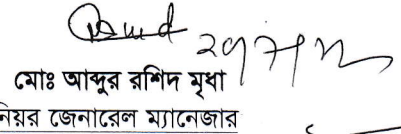 মোঃ আব্দুর রশিদ মৃধা
নিয়র জেনারেল ম্যানেজার